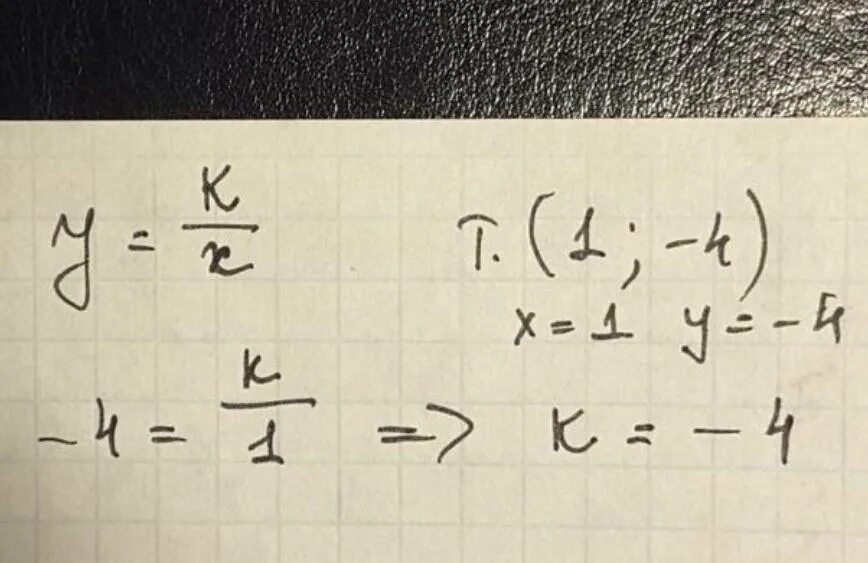 y = K/x т. (1; -4)
x = 1 y = -4
-4 = K/1 => K = -4